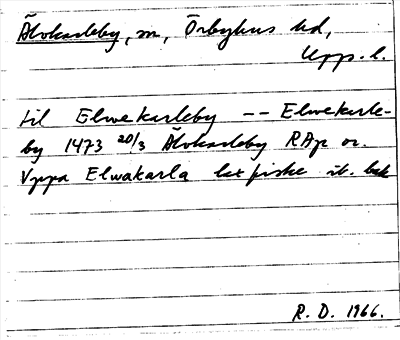 Älvkarleby, sn, Örbyhus hd,
Upp. l.
til Elwekarleby -- Elwekarle-
by 1473 20/3 Älvkarleby RAp or.
Vppa Elwakarla laxfiske ib. bak
R. D. 1966.